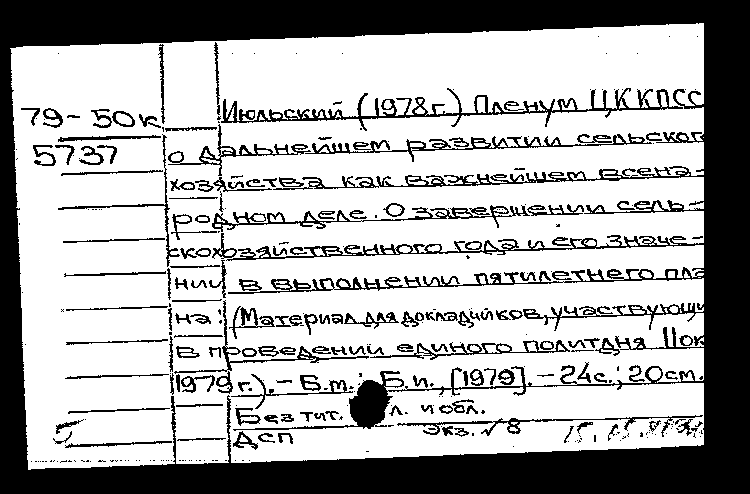 79-50к Июльский (1978г.) Пленум ЦК КПСС
5737 о дальнейшем развитии сельског
хозяйства как важнейшем всена-
родном деле. О завершении сель-
скохозяйственного года и его значе-
нии в выполнении пятилетнего пла
на: (Материал для докладчиков, участвующи
в проведении единого политдня 11 ок
1979 г.). - Б.т.: Б.и., [1979]. - 24 с.; 20 см.
Без тит. л. и обл.
ДСП экз. № 8